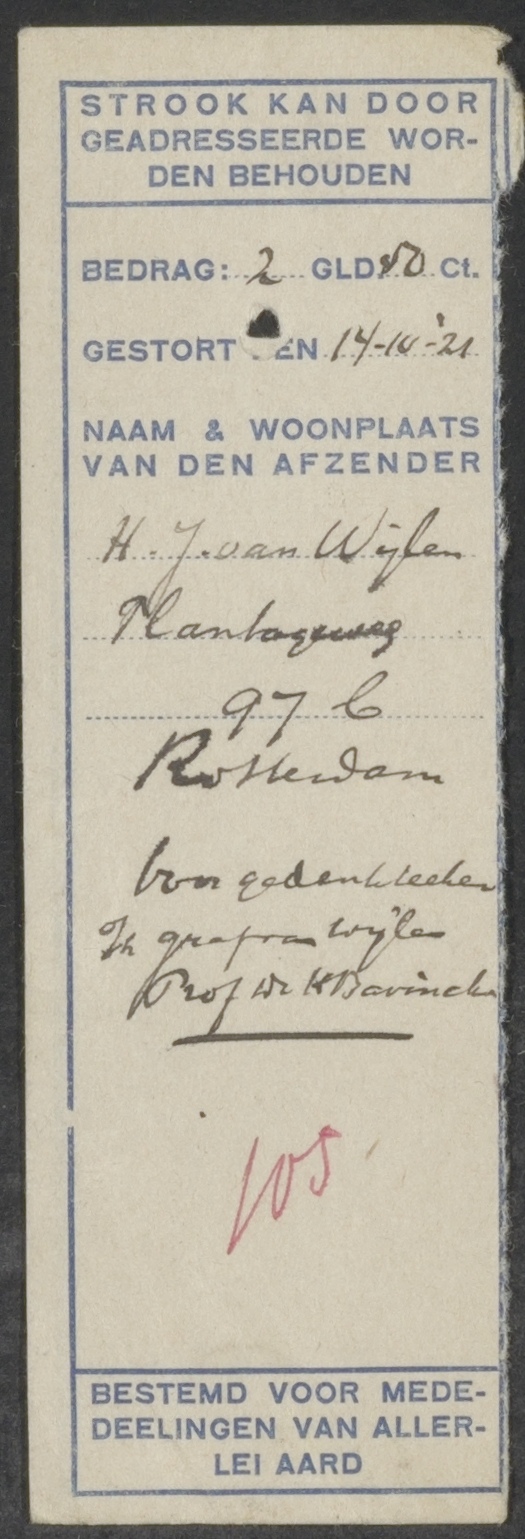 STROOK KAN DOOR
GEADRESSEERDE WOR-
DEN BEHOUDEN
BEDRAG: 2 GLD. 50 Ct.
GESTORT EN 14-10-'21
NAAM & WOONPLAATS
VAN DEN AFZENDER
H. J. van Wijlen
Plantageweg
97 b
Rotterdam
Voor gedenkteeken
graf van wijlen
Prof Dr H Bavinck
105
BESTEMD VOOR MEDE-
DEELINGEN VAN ALLER-
LEI AARD